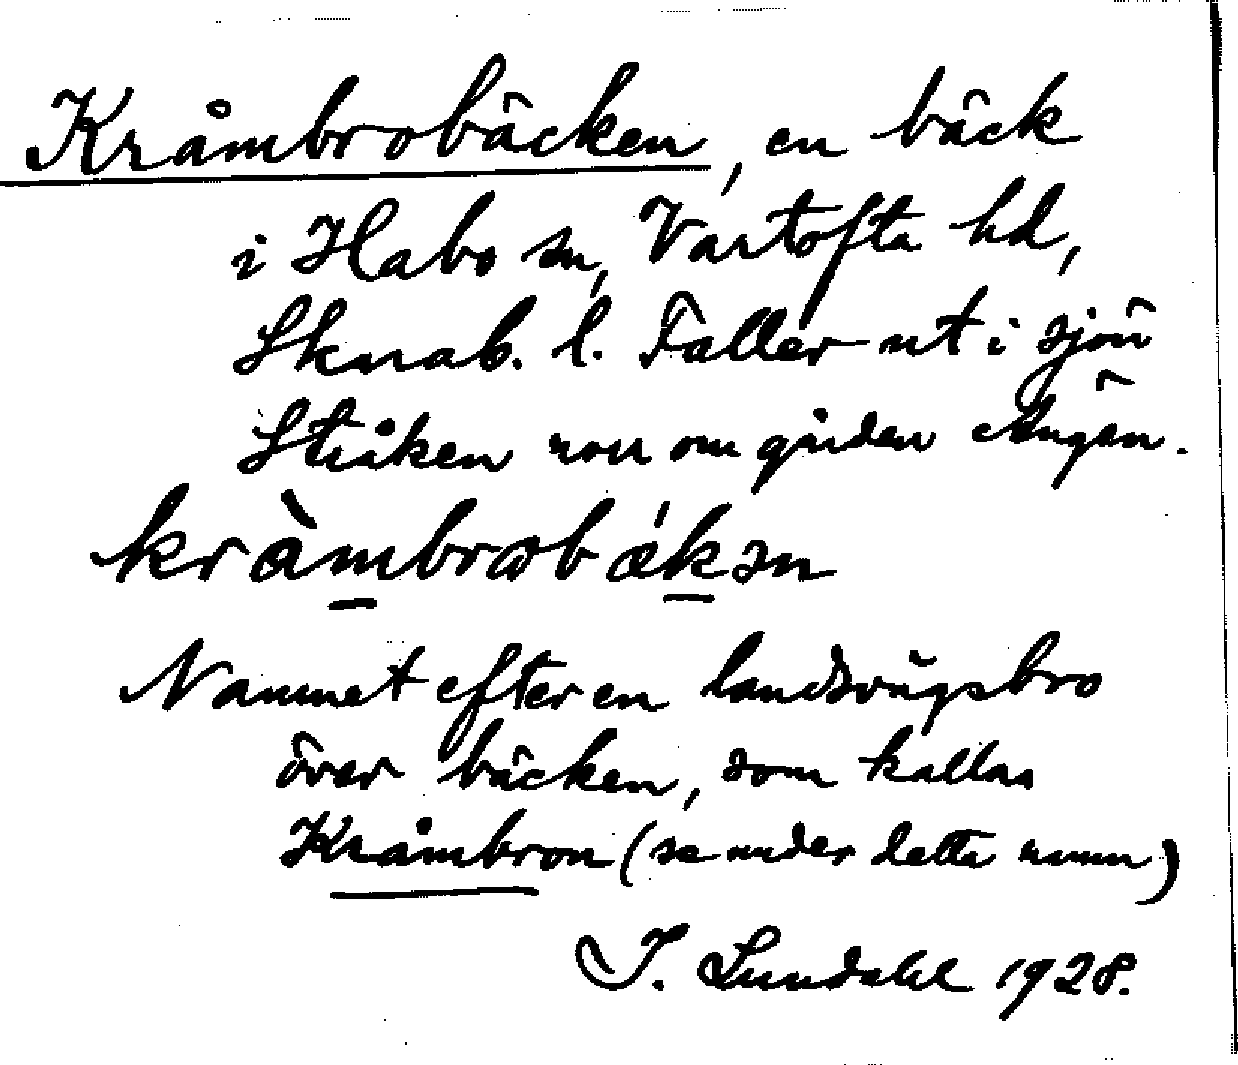 Kråmbrobäcken, en bäck
i Habo sn, Vartofta hd,
Skarab. l. Faller ut i sjön
Stråken norr om gården Ängen.
kràmbrωbǽkən
Namnet efter en landsvägsbro
över bäcken, som kallas
Kråmbron (se under detta namn)
I. Lundahl 1928.